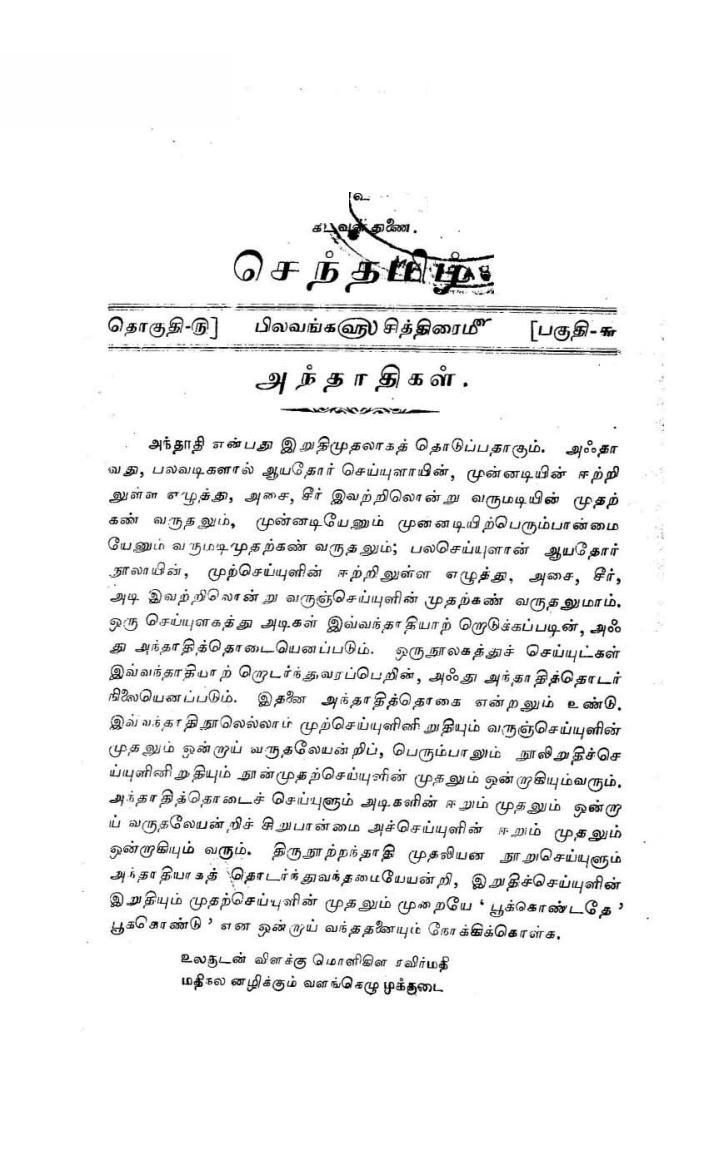 உ
கடவுள் துணை.
செந்தமிழ்
தொகுதி-ரு] பிலவங்க௵ சித்திரைமீ [பகுதி-௬
அந்தாதிகள்.
அந்தாதி என்பது இறுதிமுதலாகத் தொடுப்பதாகும். அஃதா
வது, பலவடிகளால் ஆயதோர் செய்யுளாயின், முன்னடியின் ஈற்றி
லுள்ள எழுத்து, அசை, சீர் இவற்றிலொன்று வருமடியின் முதற்
கண் வருதலும், முன்னடியேனும் முனனடியிற்பெரும்பான்மை
யேனும் வருமடிமுதற்கண் வருதலும்; பலசெய்யுளான் ஆயதோர்
நூலாயின், முற்செய்யுளின் ஈற்றிலுள்ள எழுத்து, அசை, சீர்,
அடி இவற்றிலொன்று வருஞ்செய்யுளின் முதற்கண் வருதலுமாம்.
ஒரு செய்யுளகத்து அடிகள் இவ்வந்தாதியாற் றொடுக்கப்படின், அஃ
து அந்தாதித்தொடையெனப்படும். ஒருநூலகத்துச் செய்யுட்கள்
இவ்வந்தாதியாற் றொடர்ந்துவரப்பெறின், அஃது அந்தாதித்தொடர்
நிலையெனப்படும். இதனை அந்தாதித்தொகை என்றலும் உண்டு.
இவ்வந்தாதிநூலெல்லாம் முற்செய்யுளினிறுதியும் வருஞ்செய்யுளின்
முதலும் ஒன்றாய் வருதலேயன்றிப், பெரும்பாலும் நூலிறுதிச்செ
ய்யுளினிறுதியும் நூன்முதற்செய்யுளின் முதலும் ஒன்றாகியும்வரும்.
அந்தாதித்தொடைச் செய்யுளும் அடிகளின் ஈறும் முதலும் ஒன்றா
ய் வருதலேயன்றிச் சிறுபான்மை அச்செய்யுளின் ஈறும் முதலும்
ஒன்றாகியும் வரும். திருநூற்றந்தாதி முதலியன நூறுசெய்யுளும்
அந்தாதியாகத் தொடர்ந்துவந்தமையேயன்றி, இறுதிச்செய்யுளின்
இறுதியும் முதற்செய்யுளின் முதலும் முறையே ‘பூக்கொண்டதே’
பூககொண்டு’ என ஒன்றாய் வந்ததனையும் நோக்கிக்கொள்க.
உலகுடன் விளக்கு மொளிகிள ரவிர்மதி
மதிகல னழிக்கும் வளங்கெழு முக்குடை